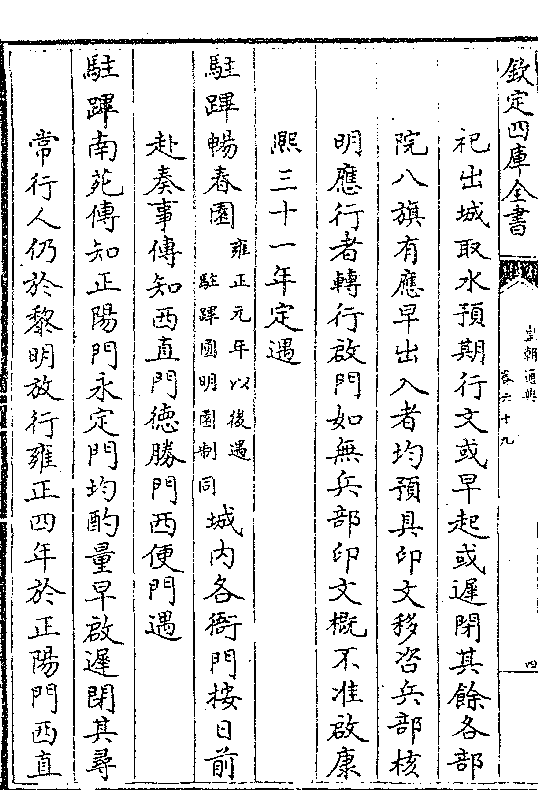 欽定四庫全書
皇朝通典
卷六十九
四
祀出城取水預期行文或早起或遲閉其餘各部
院八旗有應早出入者均預具印文移咨兵部核
明應行者轉行啟門如無兵部印文概不准啟康
熙三十一年定遇
駐蹕暢春園雍正元年以後遇駐蹕圓明園制同城内各衙門按日前
赴奏事傳知西直門德勝門西便門遇
駐蹕南苑傳知正陽門永定門均酌量早啟遲閉其尋
常行人仍於黎明放行雍正四年於正陽門西直